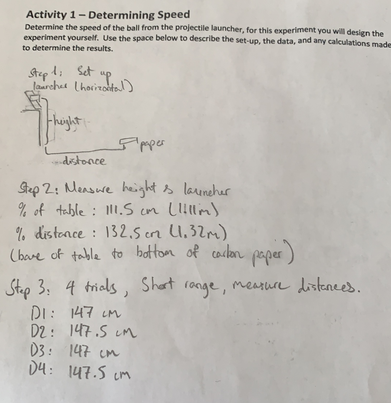 Activity 1 – Determining Speed
Determine the speed of the ball from the projectile launcher, for this experiment you will design the
experiment yourself. Use the space below to describe the set-up, the data, and any calculations made
to determine the results.
Step 1: Set up
launcher (horizontal)
height
paper
distance
Step 2: Measure height & launcher
% of table : 111.5 cm (1.11m)
% distance : 132.5 cm (1.32m)
(base of table to bottom of carbon paper)
Step 3: 4 trials, Short range, measure distances.
D1: 147 cm
D2: 147.5 cm
D3: 147 cm
D4: 147.5 cm